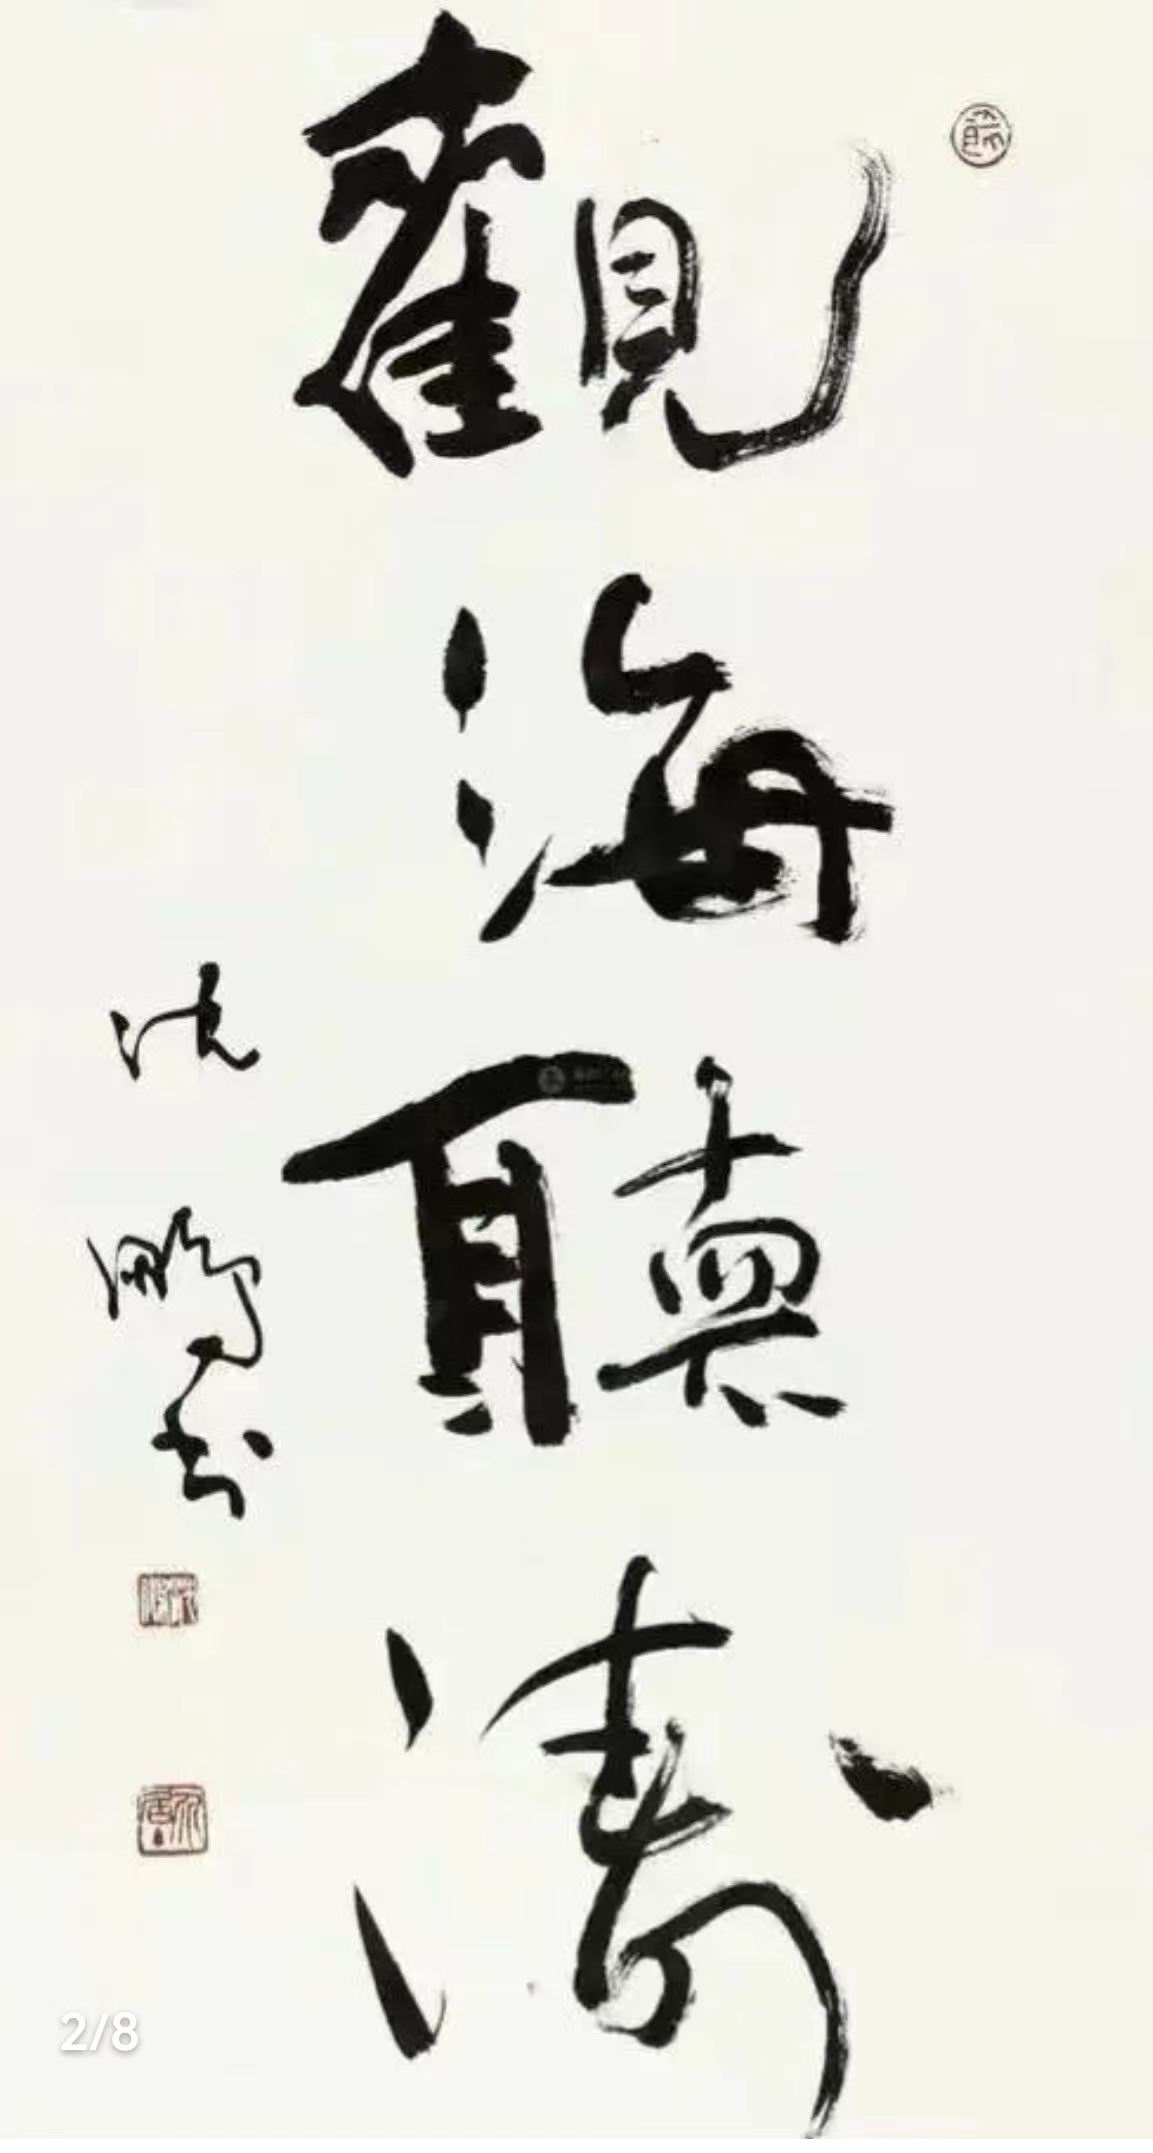 觀海聽濤
沈鵬書
2/8